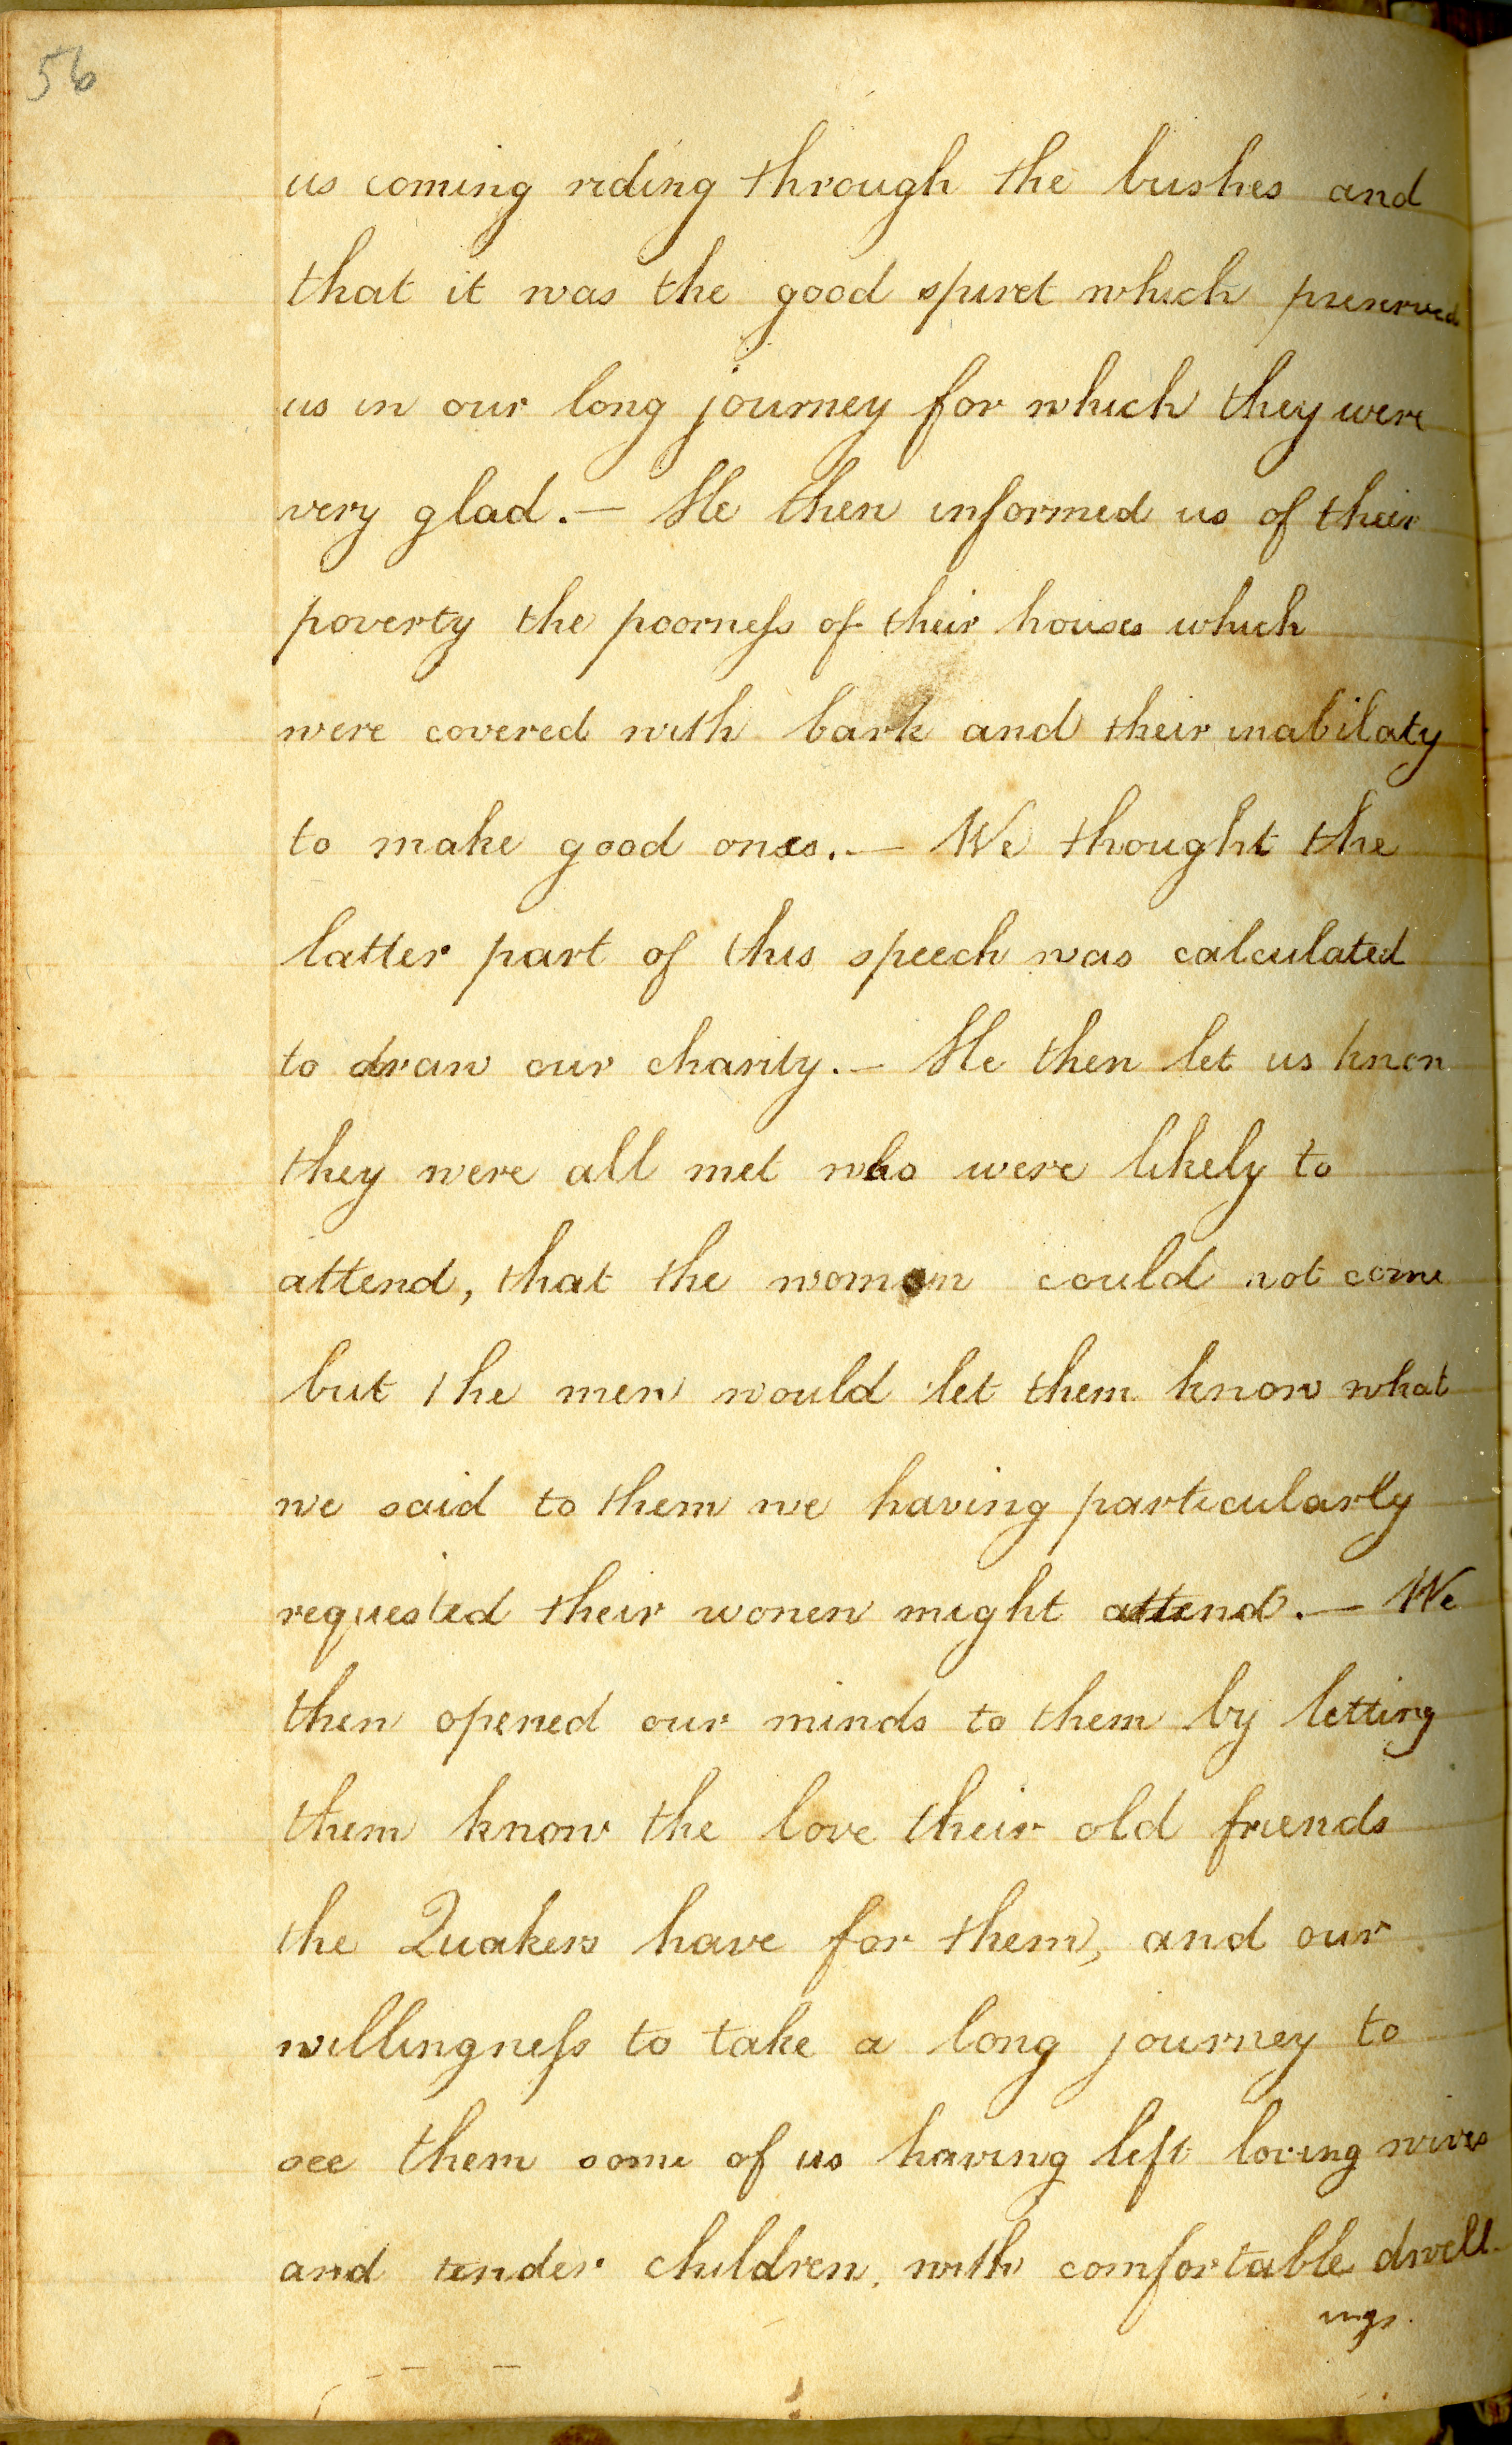 56
us coming riding through the bushes and
that it was the good spiret which preserved
us in our long journey for which they were
very glad.— He then informed us of their
poverty the poorneſs of their houses which
were covered with bark and their inabilaty
to make good ones.— We thought the
latter part of this speech was calculated
to draw our charity.— He then let us know
they were all met who were likely to
attend, that the women could not come
but the men would let them know what
we said to them we having particularly
requested their wonen might attend.— We
then opened our minds to them by letting
them know the love their old friends
the Quakers have for them, and our
willingneſs to take a long journey to
see them some of us having left loving wives
and tender children, with comfortable dwell-
ings.